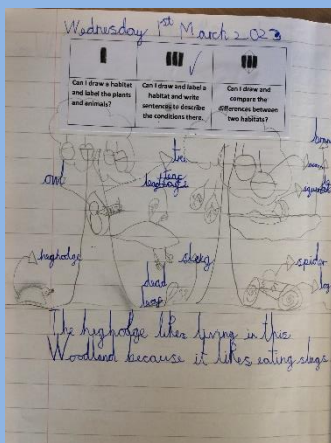 Wednesday 1st March 2023
Can I draw a habitat and label the plants and animals?
Can I draw and label a habitat and write sentences to describe the conditions there.
Can I draw and compare the differences between two habitats?
tree
owl
squirrel
hoghodge
slug
spider
dead
leaf
log
The hoghodge likes living in this
Woodland because it likes eating slugs